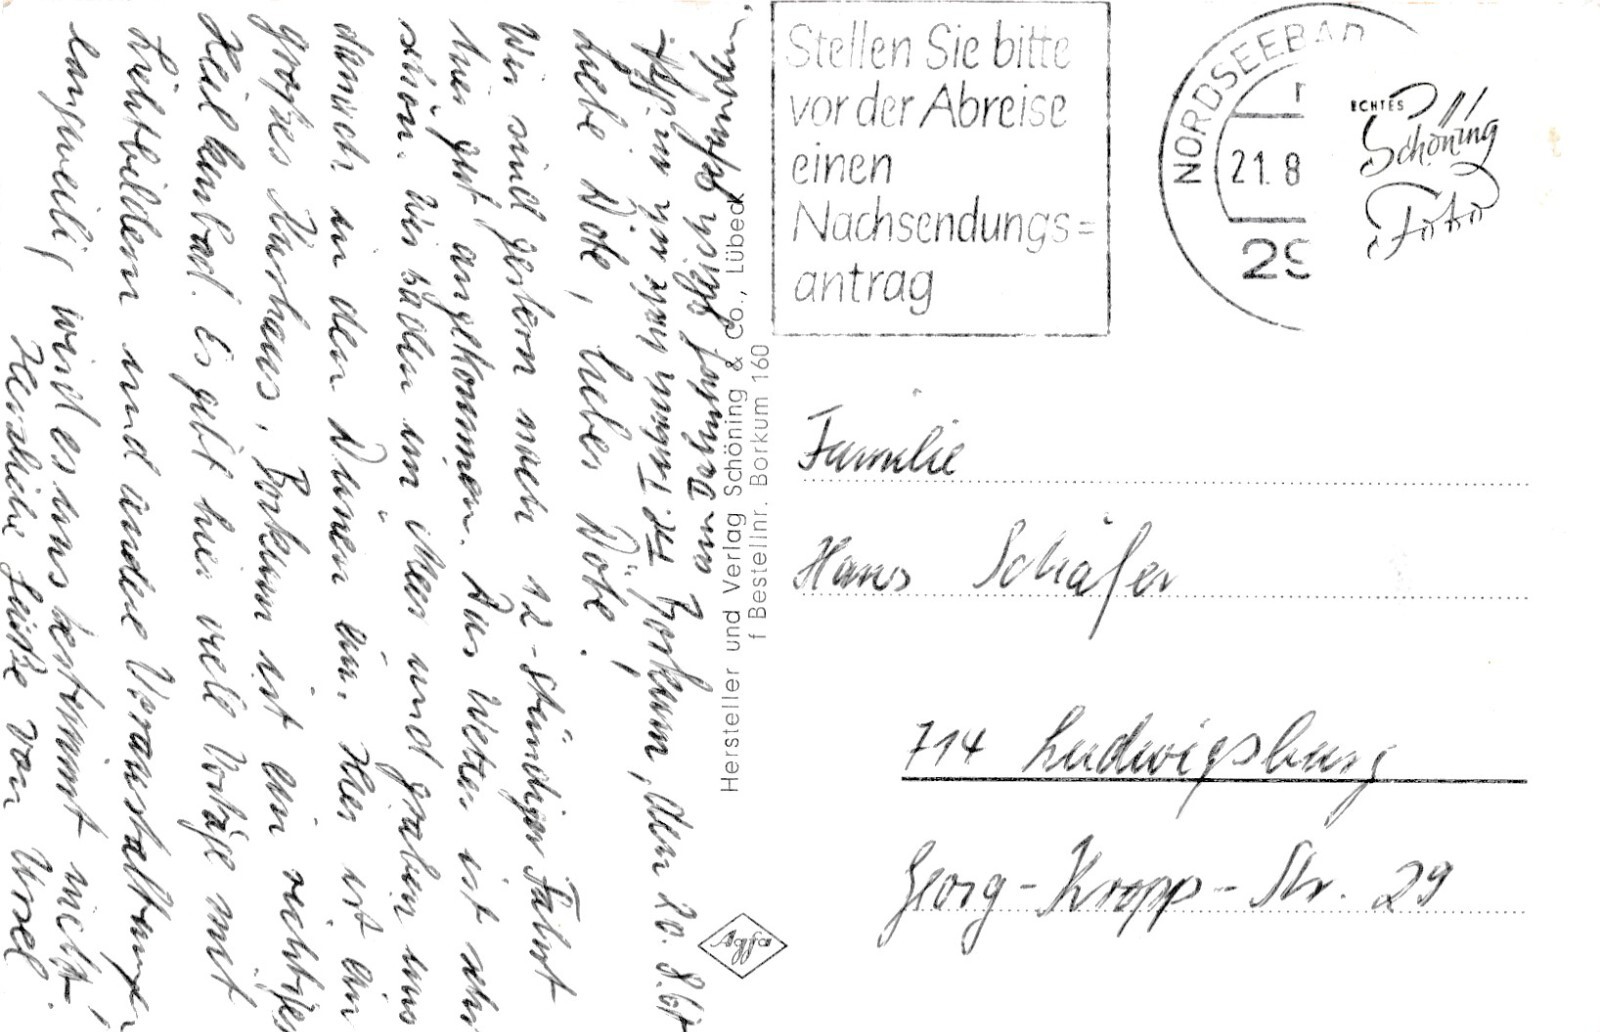 Borkum, den 20. 8. 67
Liebe Dote, lieber Döte!
Wir sind gestern nach 12-stündiger Fahrt
hier gut angekommen. Das Wetter ist sehr
schön. Wir baden im Meer und graben uns
danach in den Dünen ein. Hier ist ein
großes Kurhaus, Borkum ist ein richtiges
Heilkurbad. Es gibt hier viele Vorträge mit
Lichtbildern und andere Veranstaltungen
langweilig wird es uns bestimmt nicht!
Herzliche Grüße von Ursel
Hersteller und Verlag Schöning & Co., Lübeck
f Bestellnr. Borkum 160
Agfa
Stellen Sie bitte
vor der Abreise
einen
Nachsendungs=
antrag
NORDSEEBAD
21.8
29
ECHTES
Schöning
Foto
Familie
Hans Schäfer
714 Ludwigsburg
Georg-Kropp-Str. 29